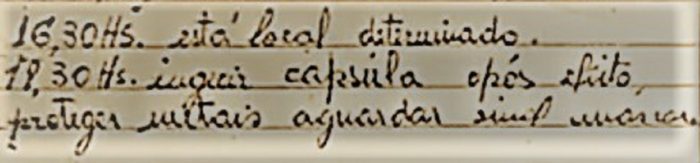 16,30Hs. está local determinado.
18,30Hs. ingerir capsula após efeito,
proteger metais aguardar sinal mascar.